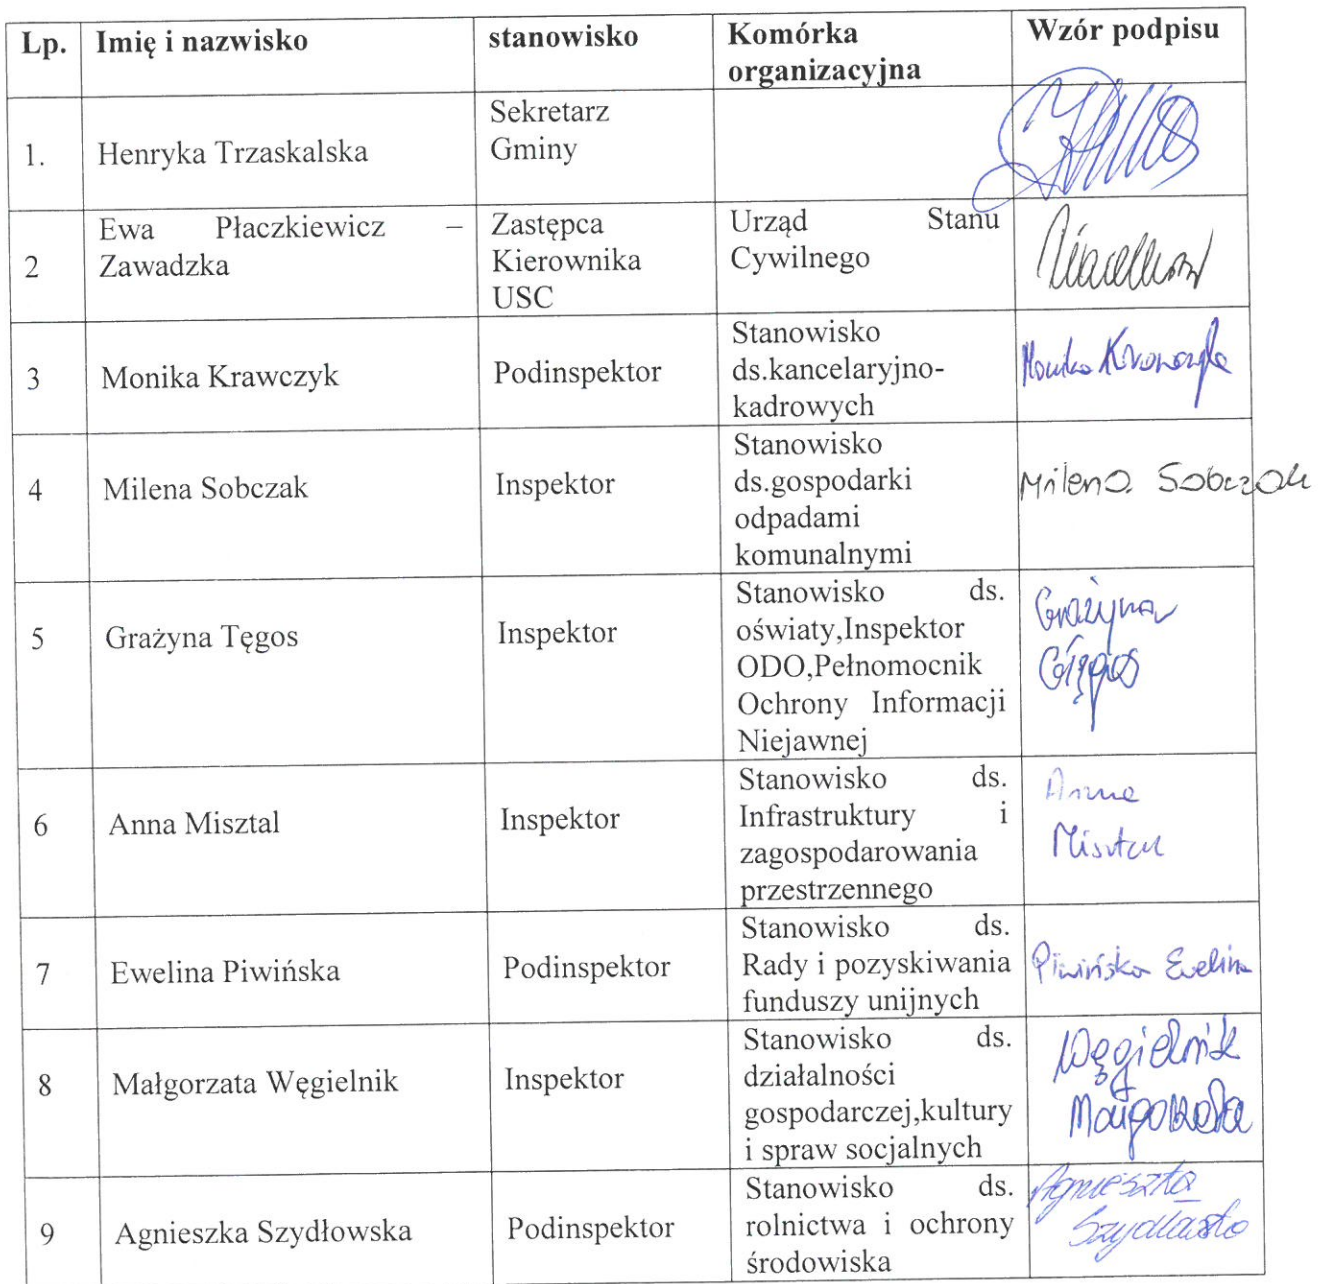 Lp. Imię i nazwisko stanowisko Komórka organizacyjna Wzór podpisu
1. Henryka Trzaskalska Sekretarz Gminy
2 Ewa Płaczkiewicz – Zawadzka Zastępca Kierownika USC Urząd Stanu Cywilnego
3 Monika Krawczyk Podinspektor Stanowisko ds.kancelaryjno-kadrowych Monika Krawczyk
4 Milena Sobczak Inspektor Stanowisko ds.gospodarki odpadami komunalnymi Milena Sobczak
5 Grażyna Tęgos Inspektor Stanowisko ds. oświaty,Inspektor ODO,Pełnomocnik Ochrony Informacji Niejawnej Grażyna
6 Anna Misztal Inspektor Stanowisko ds. Infrastruktury i zagospodarowania przestrzennego Anna Misztal
7 Ewelina Piwińska Podinspektor Stanowisko ds. Rady i pozyskiwania funduszy unijnych Piwińska Ewelina
8 Małgorzata Węgielnik Inspektor Stanowisko ds. działalności gospodarczej,kultury i spraw socjalnych Węgielnik Małgorzata
9 Agnieszka Szydłowska Podinspektor Stanowisko ds. rolnictwa i ochrony środowiska Agnieszka Szydłowska